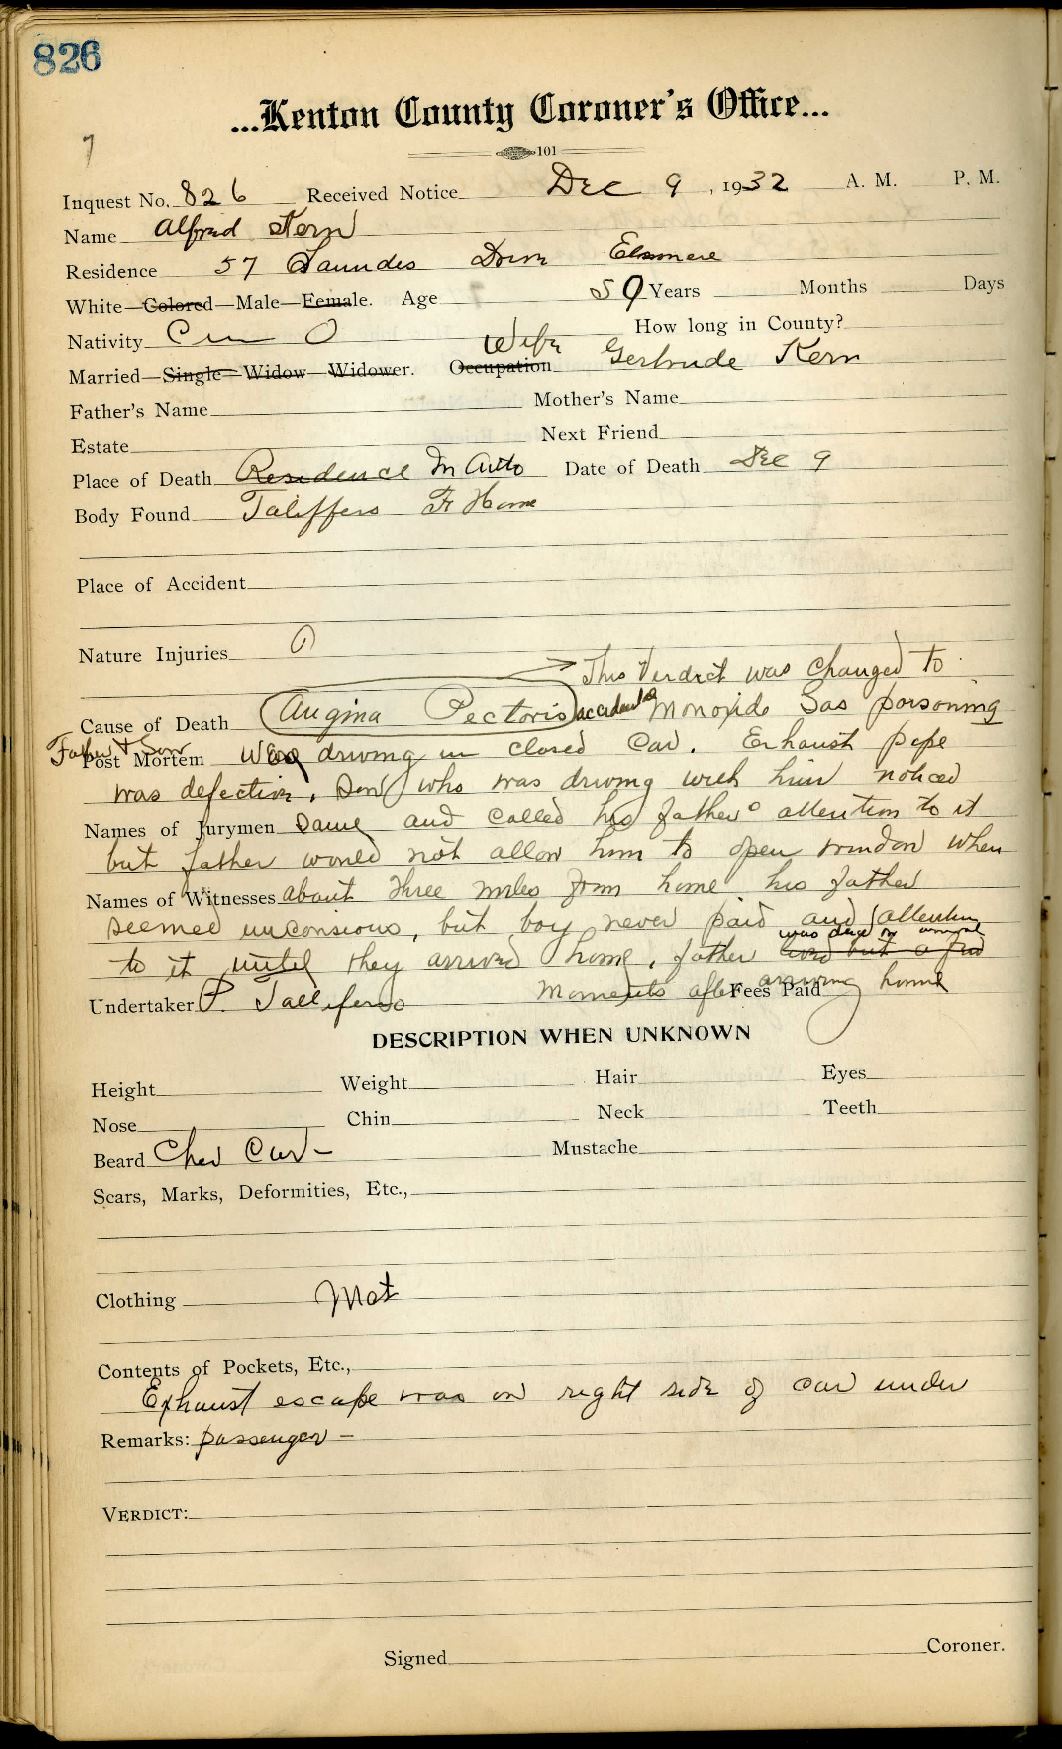 826
...Kenton County Coroner's Office...
7
101
Inquest No. 826 Received Notice Dec 9, 1932 A. M. P. M.
Name Alfred Kern
Residence 57 Drive Elsmere
White—Colored—Male—Female. Age 59 Years Months Days
Nativity Cin O How long in County?
Married—Single—Widow—Widower. Occupation Wife Gertrude Kern
Father's Name Mother's Name
Estate Next Friend
Place of Death Residence In Auto Date of Death Dec 9
Body Found Taliffero F Home
Place of Accident
Nature Injuries
This Verdict was changed to
Cause of Death Angina Pectoris accidental Monoxide Gas poisoning
Father & Son
Post Mortem were driving in closed car. Exhaust pipe
was defective, Son who was driving with him noticed
Names of Jurymen same and called his father's attention to it
but father would not allow him to open window when
Names of Witnesses about three miles from home his father
seemed unconsious, but boy never paid any attention
was dead on arrival
to it until they arrived home, father lived but a few
Undertaker P. Talliferro moments after arriving home Fees Paid
DESCRIPTION WHEN UNKNOWN
Height Weight Hair Eyes
Nose Chin Neck Teeth
Beard Chev Car -
Mustache
Scars, Marks, Deformities, Etc.,
Clothing Mat
Contents of Pockets, Etc.,
Exhaust escape was on right side of car under
Remarks: passenger -
VERDICT:
Signed Coroner.